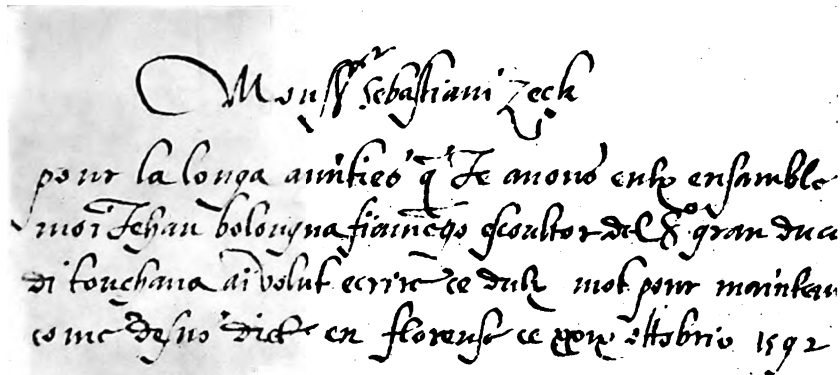 Monssr Sebastiani Zeck
pour la longa amities q Je avons entx ensamble
moi Jehan bolongna fiamengo escoultor del S.or gran duca
di touschana ai volut ecrire ce dulx mot pour maintan
come desus dict en florense ce xxix ottobrio 1592